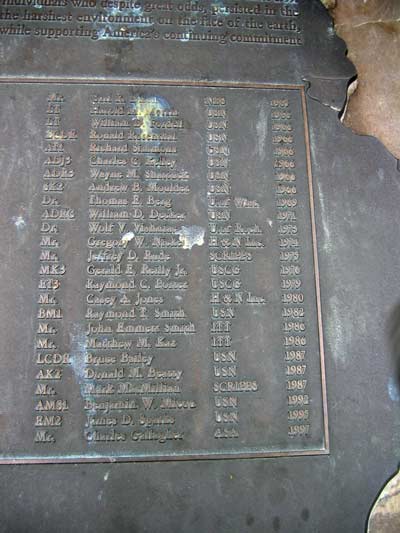 individuals who despite great odds, persisted in the
the harshest environment on the face of the earth,
while supporting America's continuing commitment
Mr. 1959
LT Harold USN 1966
LT William D. USN 1966
Ronald Rosenthal USN 1966
Richard Simmons USN 1966
ABJ3 Charles C. Kelley USN 1966
ADR3 Wayne M. Shattuck USN 1966
SK2 Andrew B. Moulder USN 1966
Dr. Thomas E. Berg U. of Wisc. 1969
ADRC William D. Decker USN 1971
Dr. Wolf V. Vishniac U. of Roch. 1973
Mr. Gregory W. Nickell H & N Inc. 1974
Mr. Jeffrey D. Rude SCRIPPS 1975
MK3 Gerald E. Reilly Jr. USCG 1976
ET3 Raymond C. Porter USCG 1979
Mr. Casey A. Jones H & N Inc. 1980
BM1 Raymond T. Smith USN 1982
Mr. John Emmett Smith ITT 1986
Mr. Matthew M. Kaz ITT 1986
LCDR Bruce Bailey USN 1987
AK2 Donald M. Beatty USN 1987
Mr. Mark MacMillian SCRIPPS 1987
AMS1 Benjamin W. Micou USN 1992
EM2 James D. Sparks USN 1995
Mr. Charles Gallagher ASA 1997